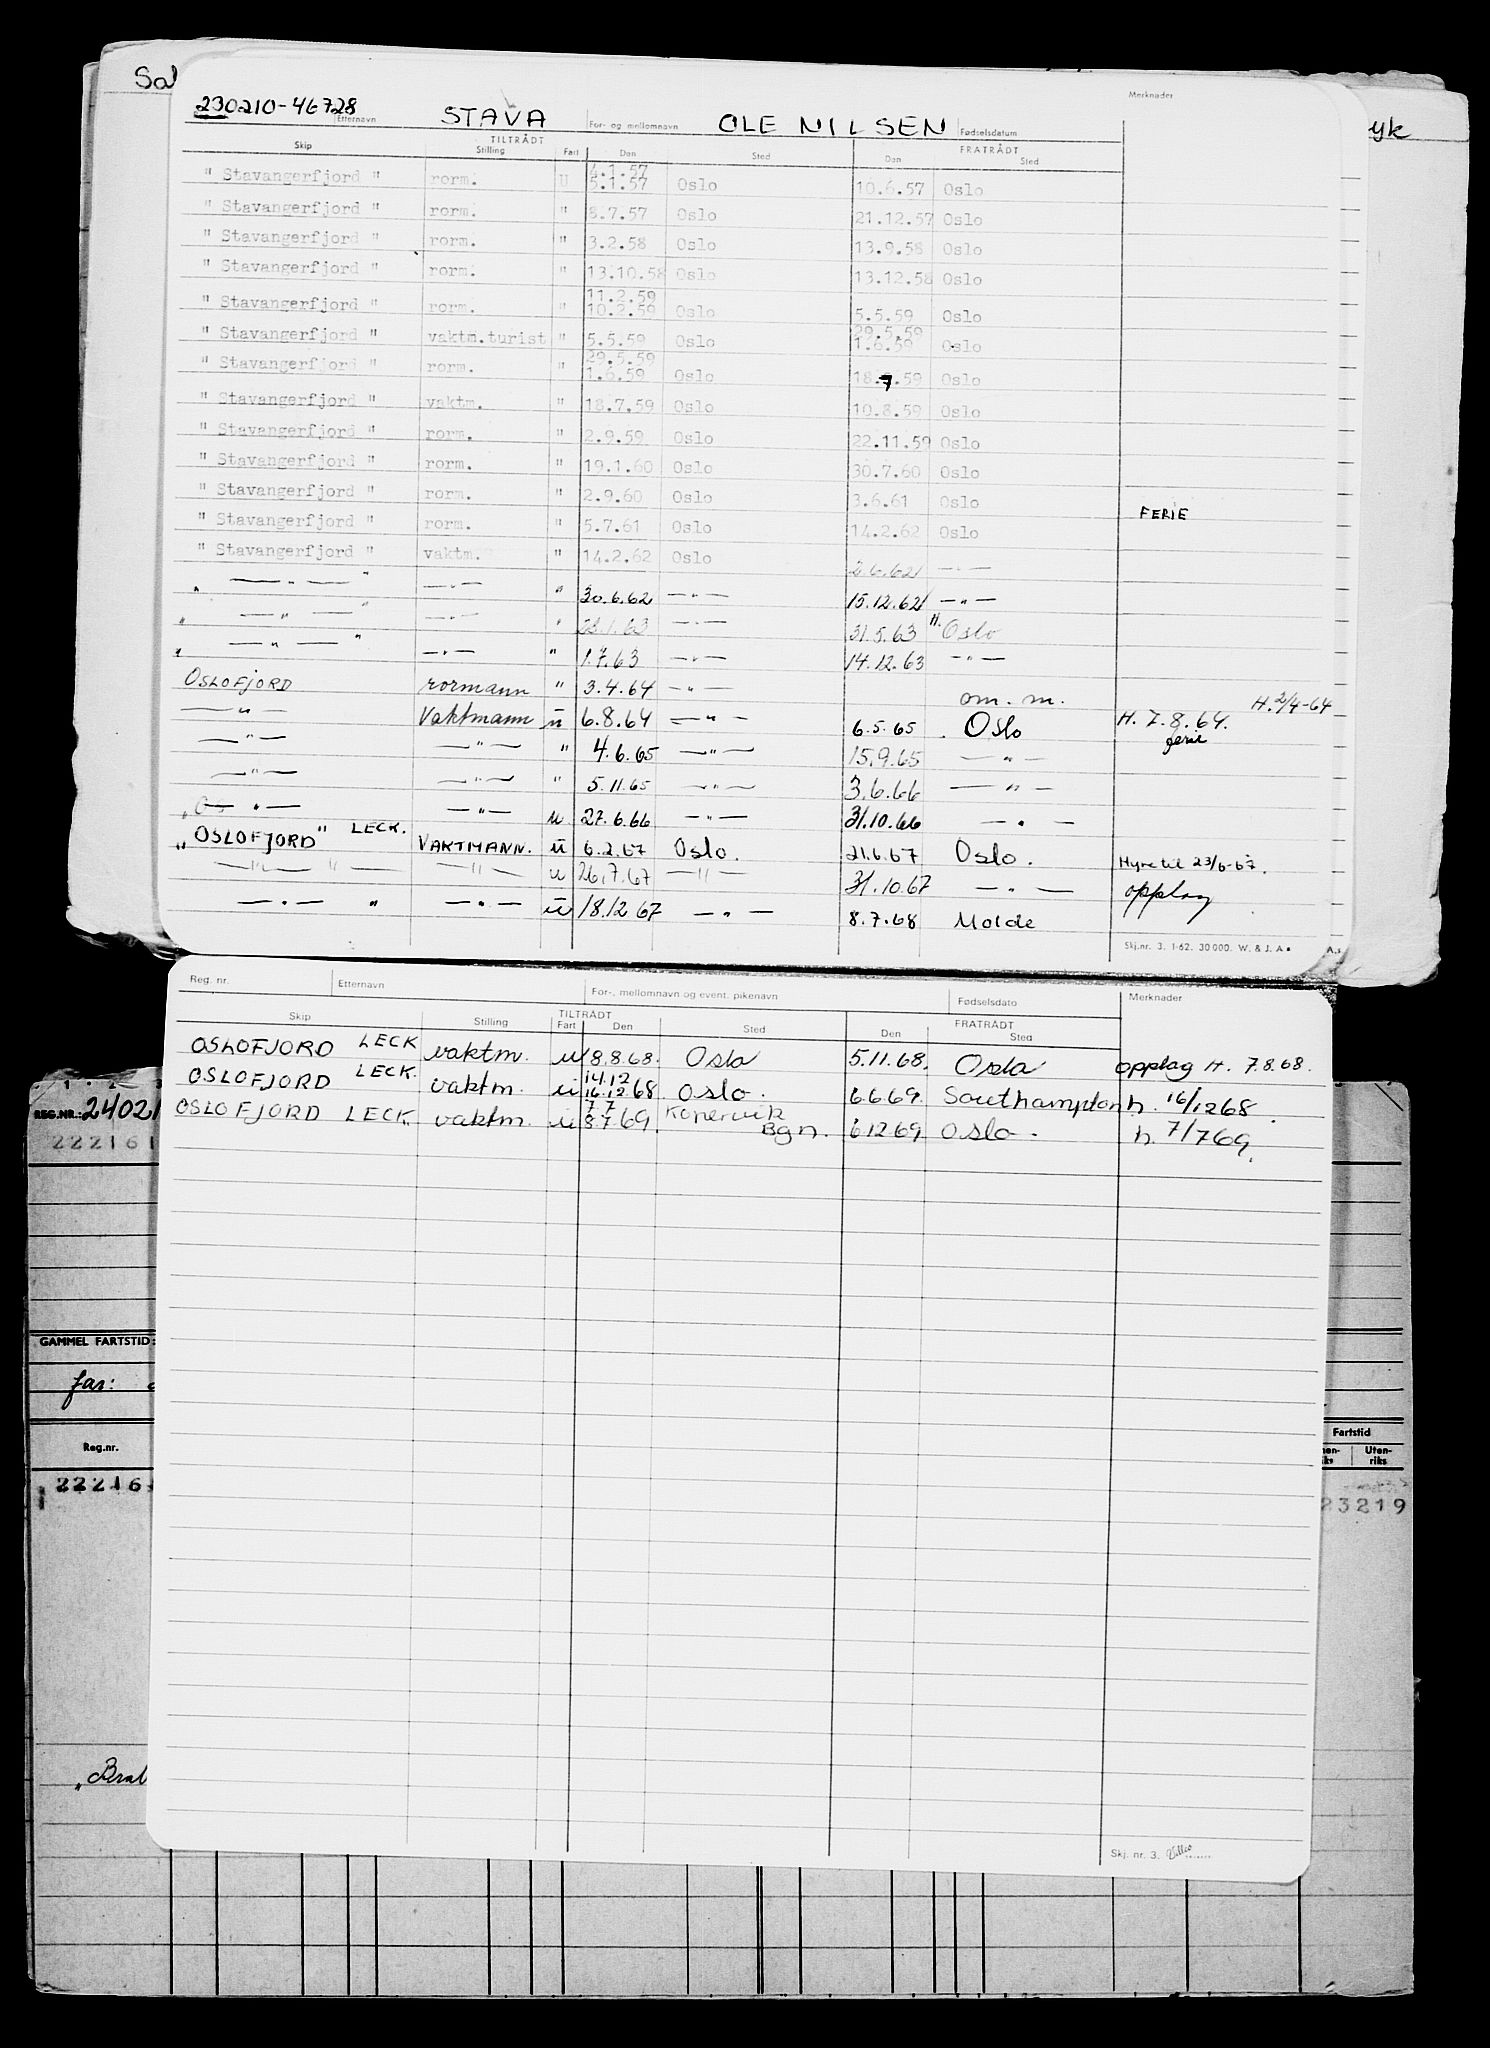 Sal
yk
Merknader
230210-46728 Etternavn STAVA For- og mellomnavn OLE NILSEN Fødselsdatum
TILTRÅDT FRATRÅDT
Skip Stilling Fart Den Sted Den Sted
4.1.57
" Stavangerfjord " rorm. U 5.1.57 Oslo 10.6.57 Oslo
" Stavangerfjord " rorm. " 8.7.57 Oslo 21.12.57 Oslo
" Stavangerfjord " rorm. " 3.2.58 Oslo 13.9.58 Oslo
" Stavangerfjord " rorm. " 13.10.58 Oslo 13.12.58 Oslo
11.2.59
" Stavangerfjord " rorm. " 10.2.59 Oslo 5.5.59 Oslo
29.5.59
" Stavangerfjord " vaktm.turist " 5.5.59 Oslo 1.6.59 Oslo
29.5.59
" Stavangerfjord " rorm. " 1.6.59 Oslo 18.7.59 Oslo
" Stavangerfjord " vaktm. " 18.7.59 Oslo 10.8.59 Oslo
" Stavangerfjord " rorm. " 2.9.59 Oslo 22.11.59 Oslo
" Stavangerfjord " rorm. " 19.1.60 Oslo 30.7.60 Oslo
" Stavangerfjord " rorm. " 2.9.60 Oslo 3.6.61 Oslo FERIE
" Stavangerfjord " rorm. " 5.7.61 Oslo 14.2.62 Oslo
" Stavangerfjord " vaktm. " 14.2.62 Oslo 2.6.62 — " —
" — " — " — " — " 30.6.62 — " — 15.12.62 — " —
" — " — " — " — " 28.1.63 — " — 31.5.63 "H. Oslo
" — " — " — " — " 1.7.63 — " — 14.12.63 — " —
OSLOFJORD rormann " 3.4.64 — " — om. m. H. 2/4-64
— " — Vaktmann u 6.8.64 — " — 6.5.65 Oslo H. 7.8.64. ferie
— " — — " — " 4.6.65 — " — 15.9.65 — " —
— " — — " — " 5.11.65 — " — 3.6.66 — " —
" — " — — " — u 27.6.66 — " — 31.10.66 — " —
"OSLOFJORD" LECK. VAKTMANN. u 6.2.67 Oslo. 21.6.67 Oslo. Hyre til 23/6-67.
— " — " — — " — u 26.7.67 — " — 31.10.67 — " — opplag
— " — " — " — u 18.12 67 — " — 8.7.68 Molde
Skj.nr. 3. 1-62. 30 000. W. & J. A.s A.s
Reg. nr. Etternavn For-, mellomnavn og event. pikenavn Fødselsdato Merknader
TILTRÅDT FRATRÅDT
Skip Stilling Fart Den Sted Den Sted
OSLOFJORD LECK vaktm. u 8.8.68. Oslo 5.11.68. Oslo opplag H. 7.8.68.
14.12
OSLOFJORD LECK. vaktm. u 16.12 68 Oslo. 6 6 69. Southampton h. 16/12 68.
7 7
OSLOFJORD LECK. vaktm. u 8 7 69. Kopervik Bgn. 6 12 69 Oslo. h. 7/7 69.
Skj. nr. 3.
REG.NR.: 24021
222161
GAMMEL FARTSTID:
far:
Reg.nr.
222161
"Bral
Fartstid
Uten-
riks
23219